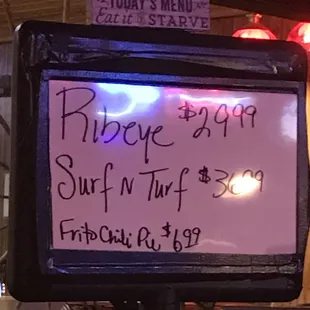 TODAY'S MENU
Eat it or STARVE
Ribeye $2999
Surf N Turf $3699
Frito Chili Pie $699